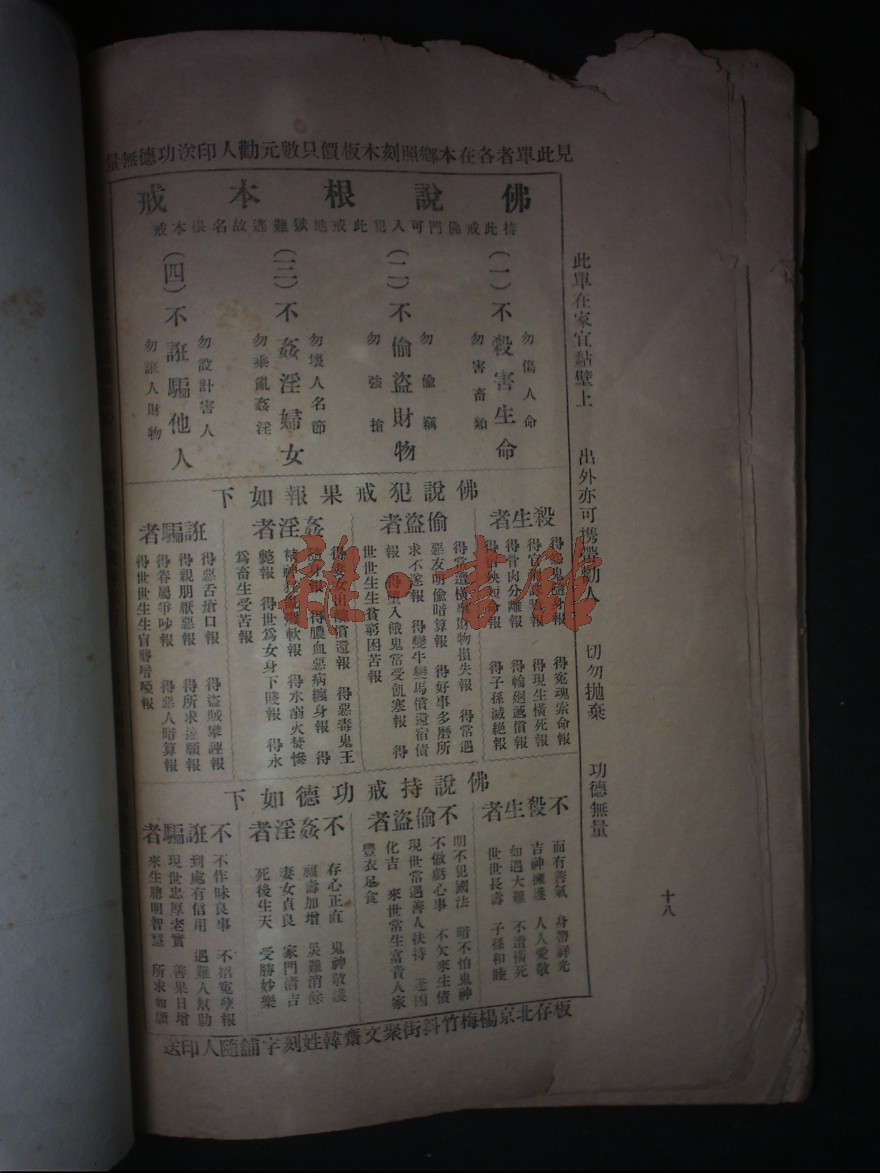 見此單者各在本鄉照刻木板價只數元勸人印送功德無量
此單在家宜黏壁上 出外亦可携帶勸人 切勿拋棄 功德無量
佛說根本戒
持此戒佛門可入犯此戒地獄難逃故名根本戒
(一)不殺害生命
勿傷人命
勿害畜類
(二)不偷盜財物
勿偷竊
勿強搶
(三)不姦淫婦女
勿壞人名節
勿乘亂姦淫
(四)不誑騙他人
勿設計害人
勿誑人財物
佛說犯戒果報如下
殺生者
得冤魂索命報
得現生橫死報
得骨肉分離報 得輪廻遞償報
得子孫滅絕報
偷盜者
財物損失報 得常遇
惡友明偷暗算報 得好事多磨所
求不遂報 得變牛變馬償還宿債
報 得墮入餓鬼常受飢寒報 得
世世生生貧窮困苦報
姦淫者
得妻女 償還報 得惡毒鬼王
報 得膿血惡病纏身報 得
報 得水溺火焚慘
斃報 得世爲女身下賤報 得永
爲畜生受苦報
誑騙者
得惡舌瘡口報 得盜賊攀誣報
得親朋厭惡報 得所求違願報
得眷屬爭吵報 得惡人暗算報
得世世生生盲聾喑啞報
佛說持戒功德如下
不殺生者
面有善氣 身帶祥光
吉神擁護 人人愛敬
如遇大難 不遭橫死
世世長壽 子孫和睦
不偷盜者
明不犯國法 暗不怕鬼神
不做虧心事 不欠來生債
現世常遇善人扶持 逢凶
化吉 來世常生富貴人家
豐衣足食
不姦淫者
存心正直 鬼神敬護
福壽加增 災難消除
妻女貞良 家門清吉
死後生天 受勝妙樂
不誑騙者
不作昧良事 不招冤孽報
到處有信用 遇難人幫助
現世忠厚老實 善果日增
來生聰明智慧 所求如願
板存北京楊梅竹斜街聚文齋韓姓刻字舖隨人印送
十八
雜·書館